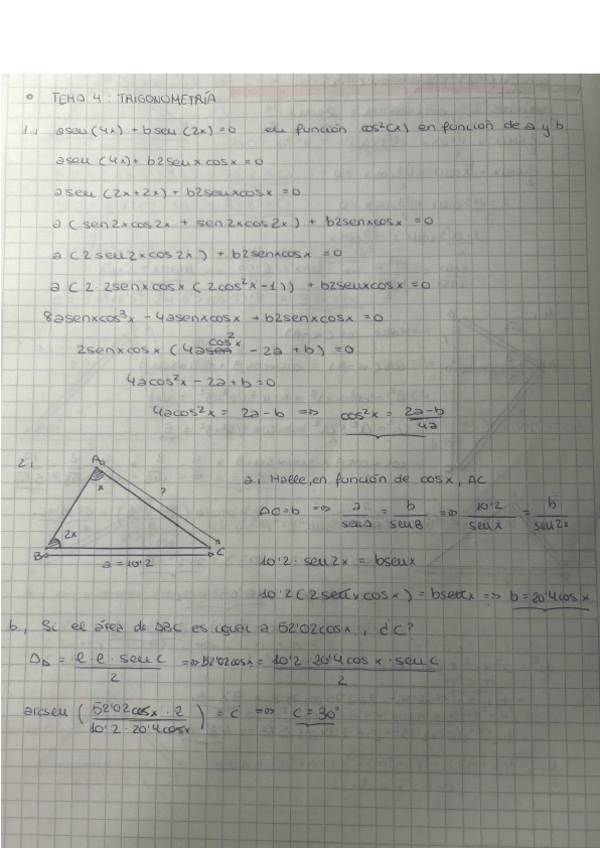 TEMA 4: TRIGONOMETRÍA
1., a sen(4x) + b sen(2x) = 0 en función cos²(x) en función de a y b
a sen(4x) + b2senxcosx = 0
a sen(2x+2x) + b2senxcosx = 0
a(sen2xcos2x + sen2xcos2x) + b2senxcosx = 0
a(2sen2xcos2x) + b2senxcosx = 0
a(2·2senxcosx(2cos²x-1)) + b2senxcosx = 0
8asenxcos³x - 4asenxcosx + b2senxcosx = 0
2senxcosx(4acos²x - 2a + b) = 0
4acos²x - 2a + b = 0
4acos²x = 2a - b => cos²x = (2a-b)/4a
2., a, Halle, en función de cosx, AC
A x ? 2x B C a = 10'2
AC=b => a/senA = b/senB => 10'2/senx = b/sen2x
10'2 · sen2x = bsenx
10'2(2senxcosx) = bsenx => b = 20'4cosx
b, Si el área de ABC es igual a 52'02cosx, ¿C?
A△ = (l·l·senC)/2 => 52'02cosx = (10'2·20'4cosx·senC)/2
arcsen((52'02cosx·2)/(10'2·20'4cosx)) = C => C = 30°